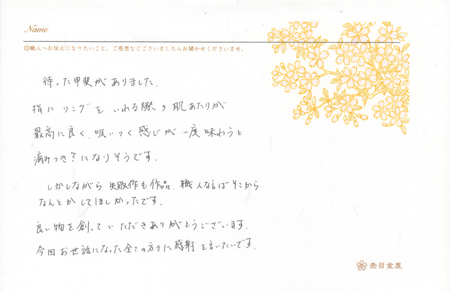 Name
◎職人へお伝えになりたいこと、ご感想などございましたらお聞かせくださいませ。
待った甲斐がありました。
指にリングをいれる際の肌あたりが
最高に良く、吸いつく感じが一度味わうと
病みつきになりそうです。
しかしながら 失敗作も作品、職人ならばそこから
なんとかしてほしかったです。
良い物を創っていただきありがとうございます。
今回お世話になった全ての方々に感謝を言いたいです。
杢目金屋